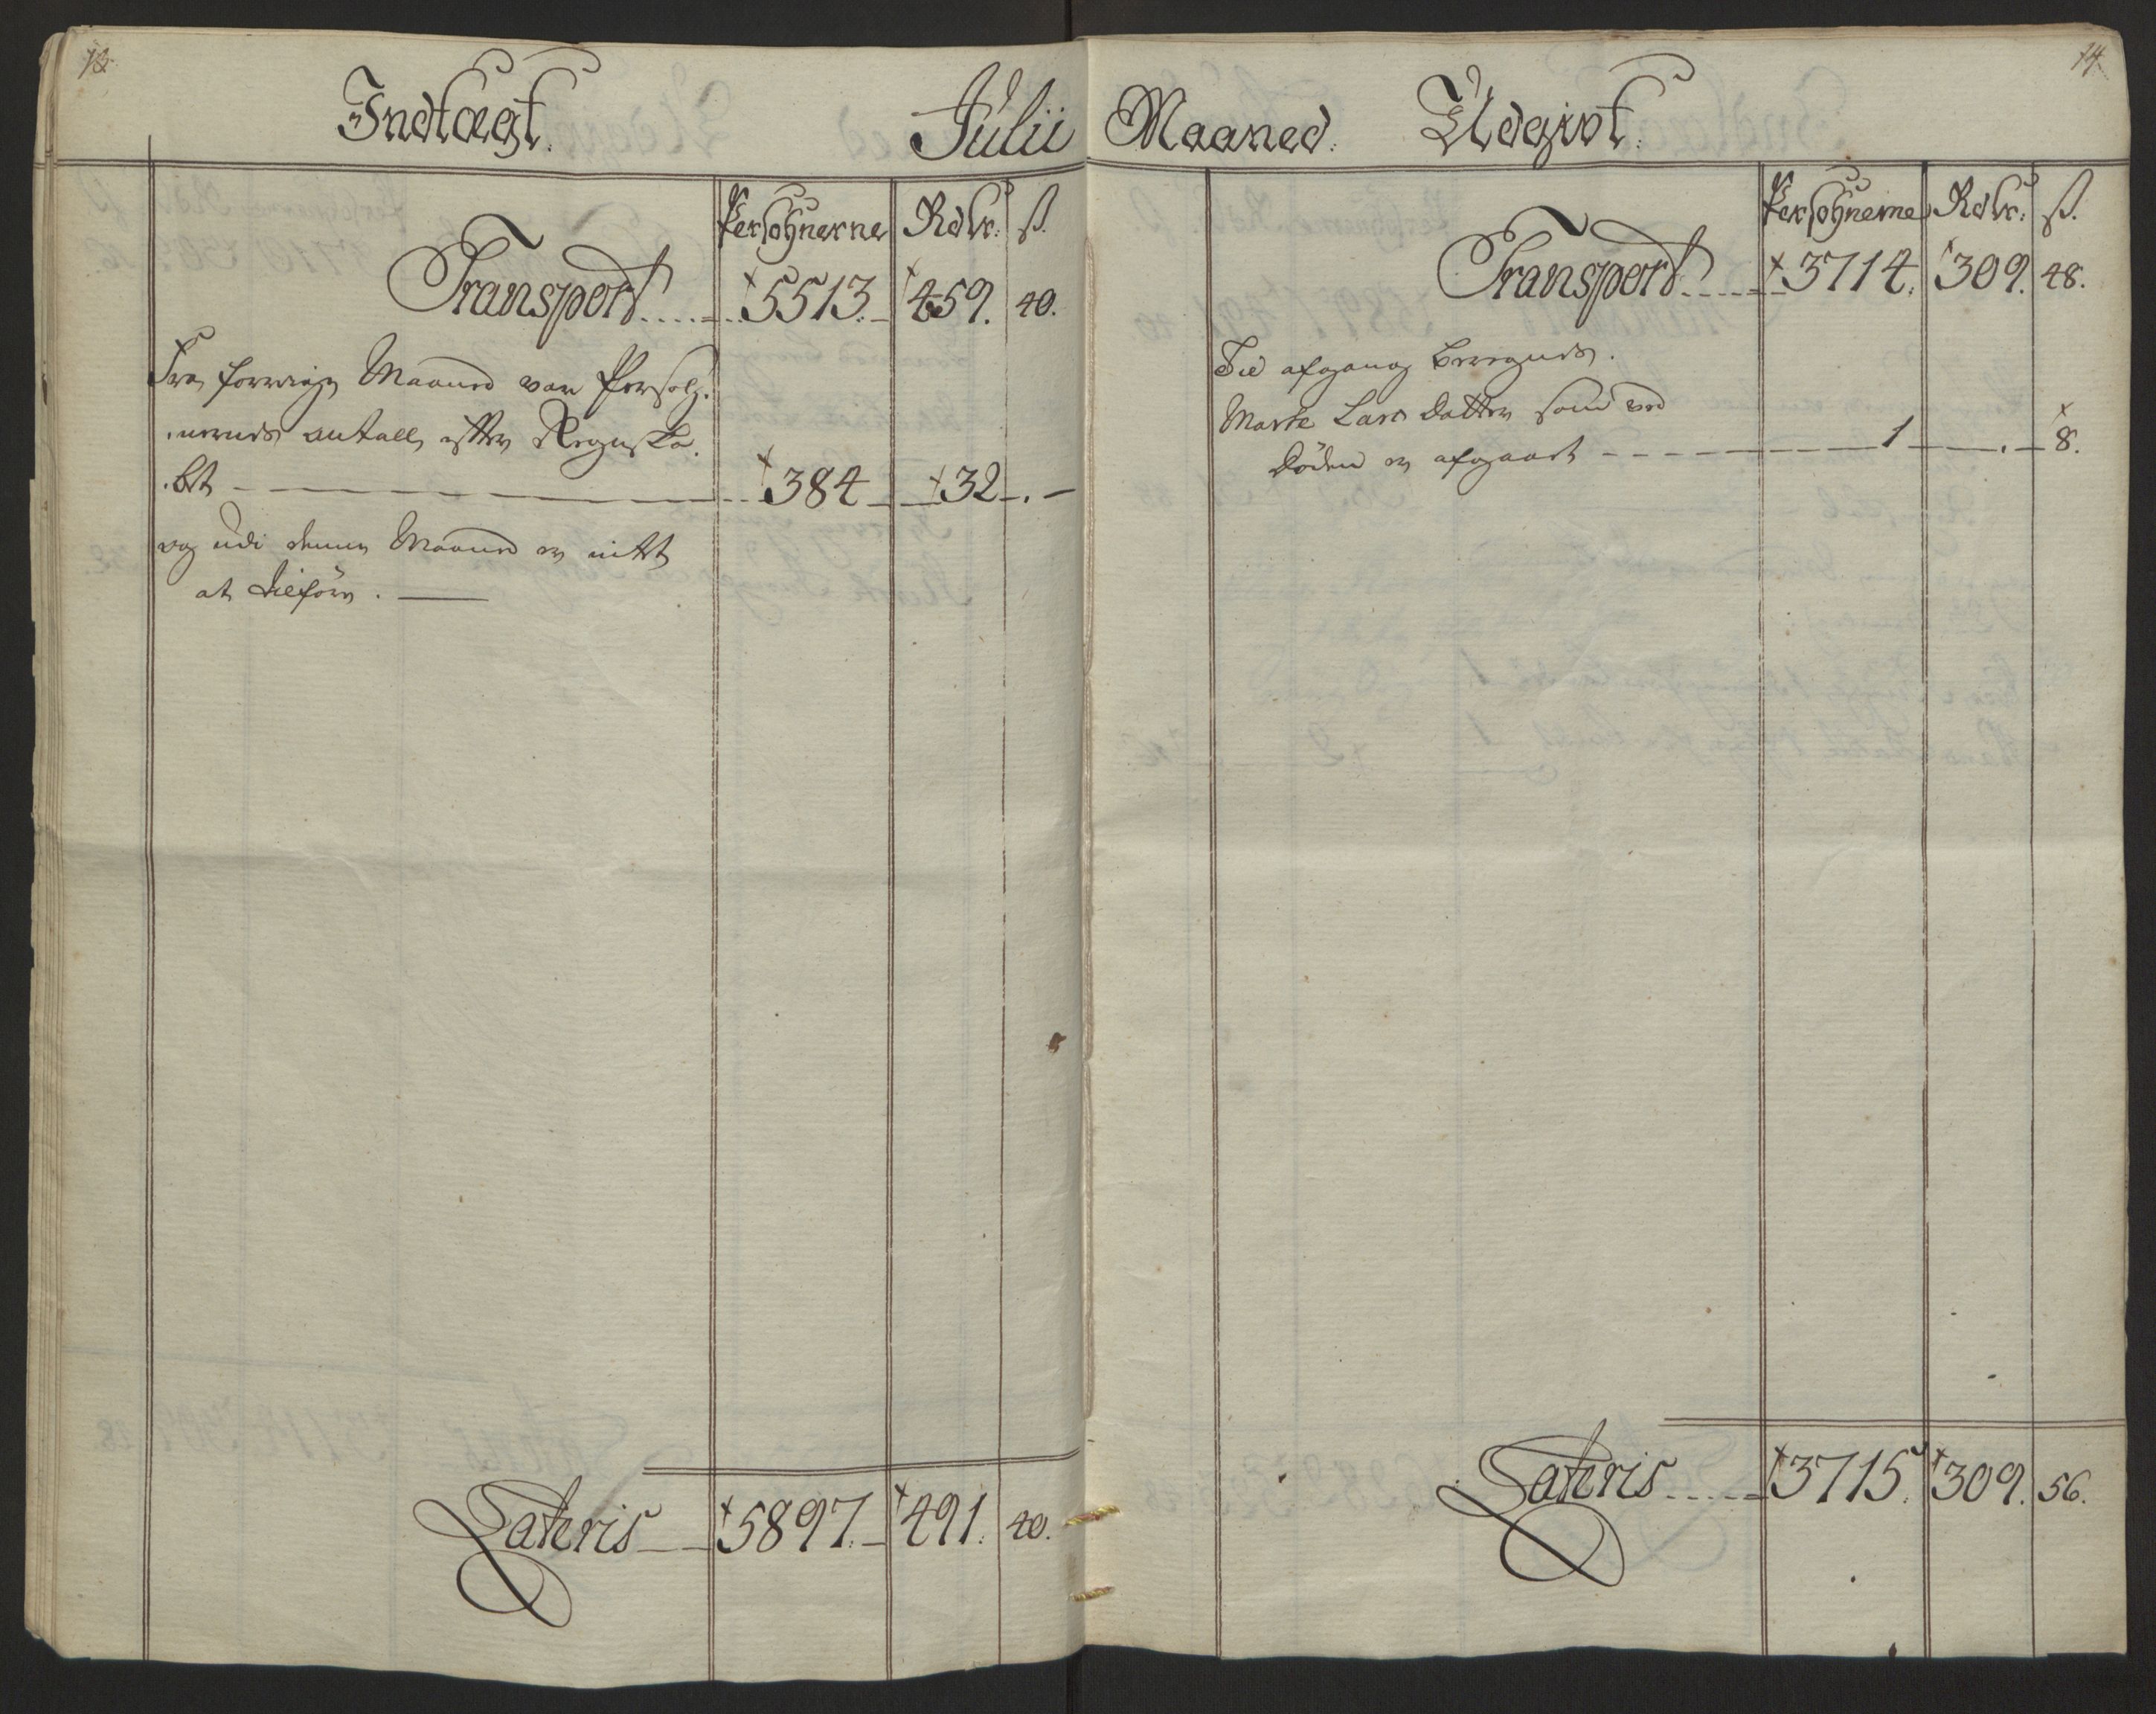 13.
Indtægt.
Julii
Persohnerne Rdlr. ß.
Transport 5513. 459. 40.
Fra forrige Maaned var Persoh-
nernes antall efter Regnska-
bet 384 32 . -
og udi denne Maaned er intet
at tilføre.
Lateris 5897. 491. 40.
14.
Maaned. Udgivt.
Persohnerne Rdlr. ß.
Transport 3714. 309. 48.
Til afgang beregnes.
Marte Lars Datter som ved
Døden er afgaaet 1 . 8.
Lateris 3715. 309. 56.